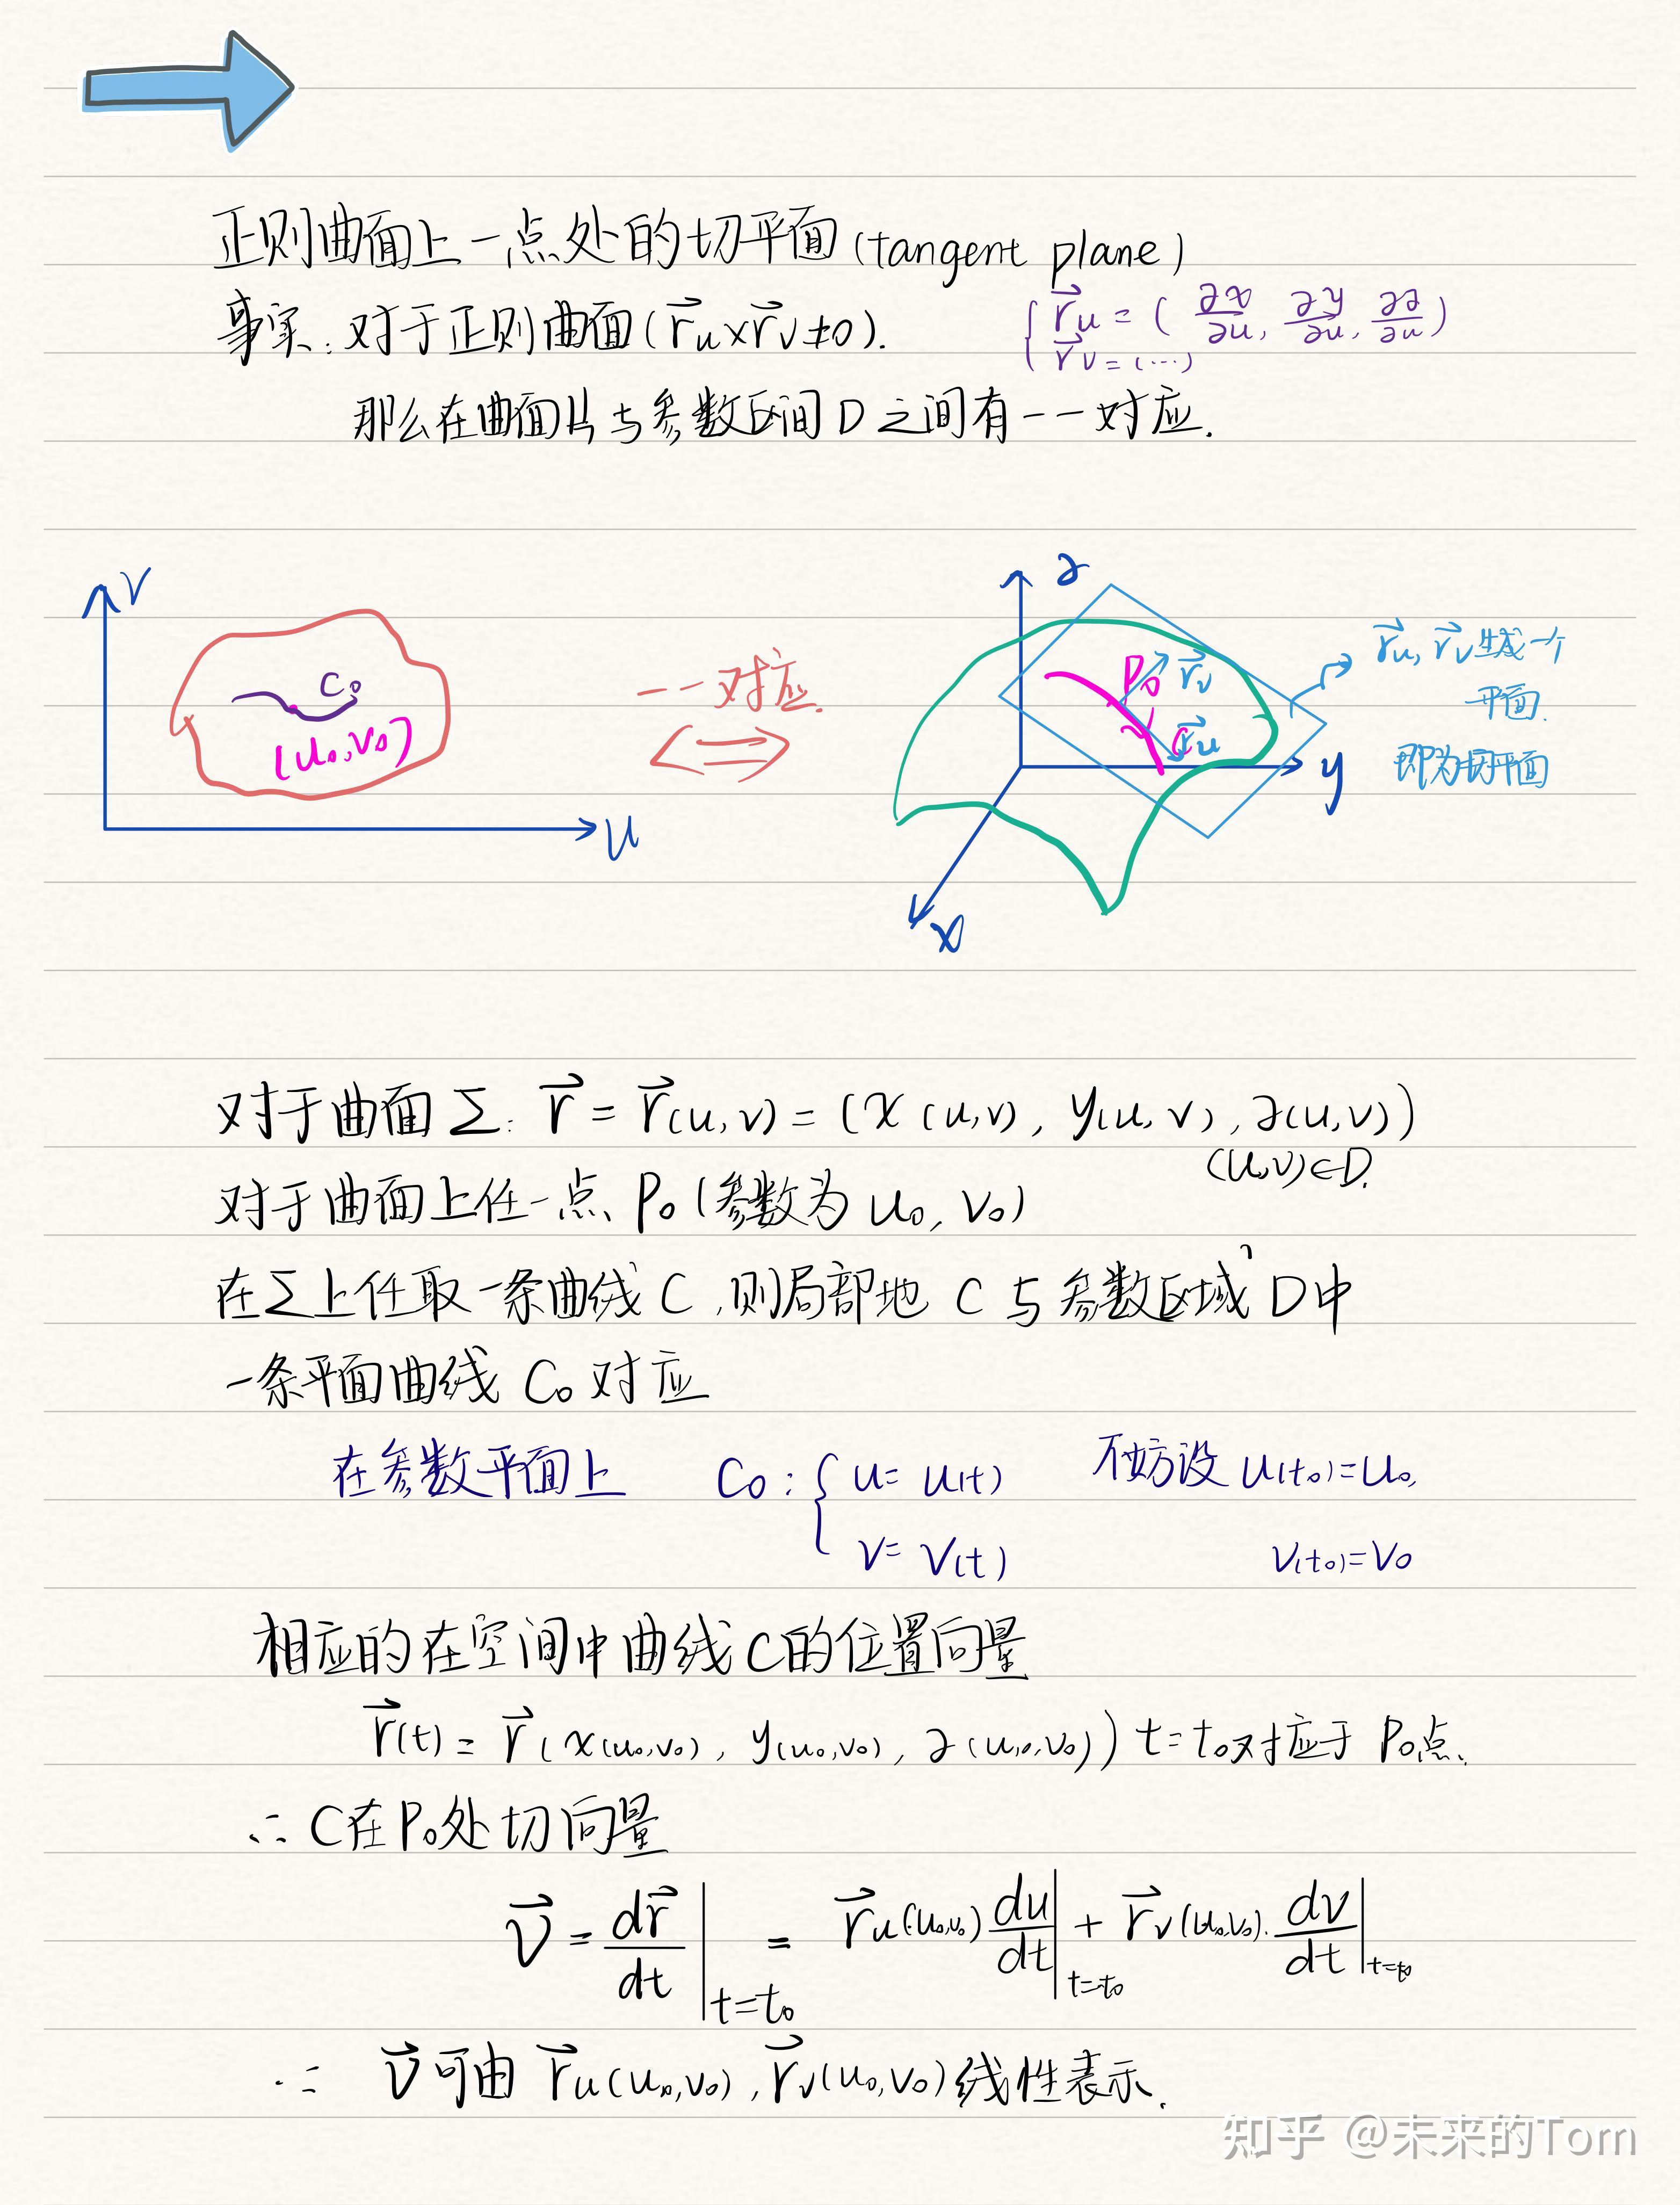 正则曲面上一点处的切平面(tangent plane)
事实:对于正则曲面(r⃗u×r⃗v≠0).
{ r⃗u = (∂x/∂u, ∂y/∂u, ∂z/∂u)
r⃗v = (…)
那么在曲面片与参数区间D之间有一一对应.
v
C₀
(u₀,v₀)
u
一一对应.
z
P₀
r⃗v
r⃗u
C
y
x
r⃗u, r⃗v生成一个
平面.
即为切平面
对于曲面Σ: r⃗ = r⃗(u,v) = (x(u,v), y(u,v), z(u,v))
(u,v)∈D.
对于曲面上任一点、P₀(参数为u₀, v₀)
在Σ上任取一条曲线C,则局部地C与参数区域D中
一条平面曲线C₀对应
在参数平面上 C₀: { u = u(t) 不妨设u(t₀)=u₀,
v = v(t) v(t₀)=v₀
相应的在空间中曲线C的位置向量
r⃗(t) = r⃗(x(u₀,v₀), y(u₀,v₀), z(u₀,v₀)) t=t₀对应于P₀点.
∴ C在P₀处切向量
v⃗ = dr⃗/dt |t=t₀ = r⃗u(u₀,v₀) du/dt |t=t₀ + r⃗v(u₀,v₀). dv/dt |t=t₀
∴ v⃗可由r⃗u(u₀,v₀), r⃗v(u₀,v₀)线性表示.
知乎 @未来的Tom